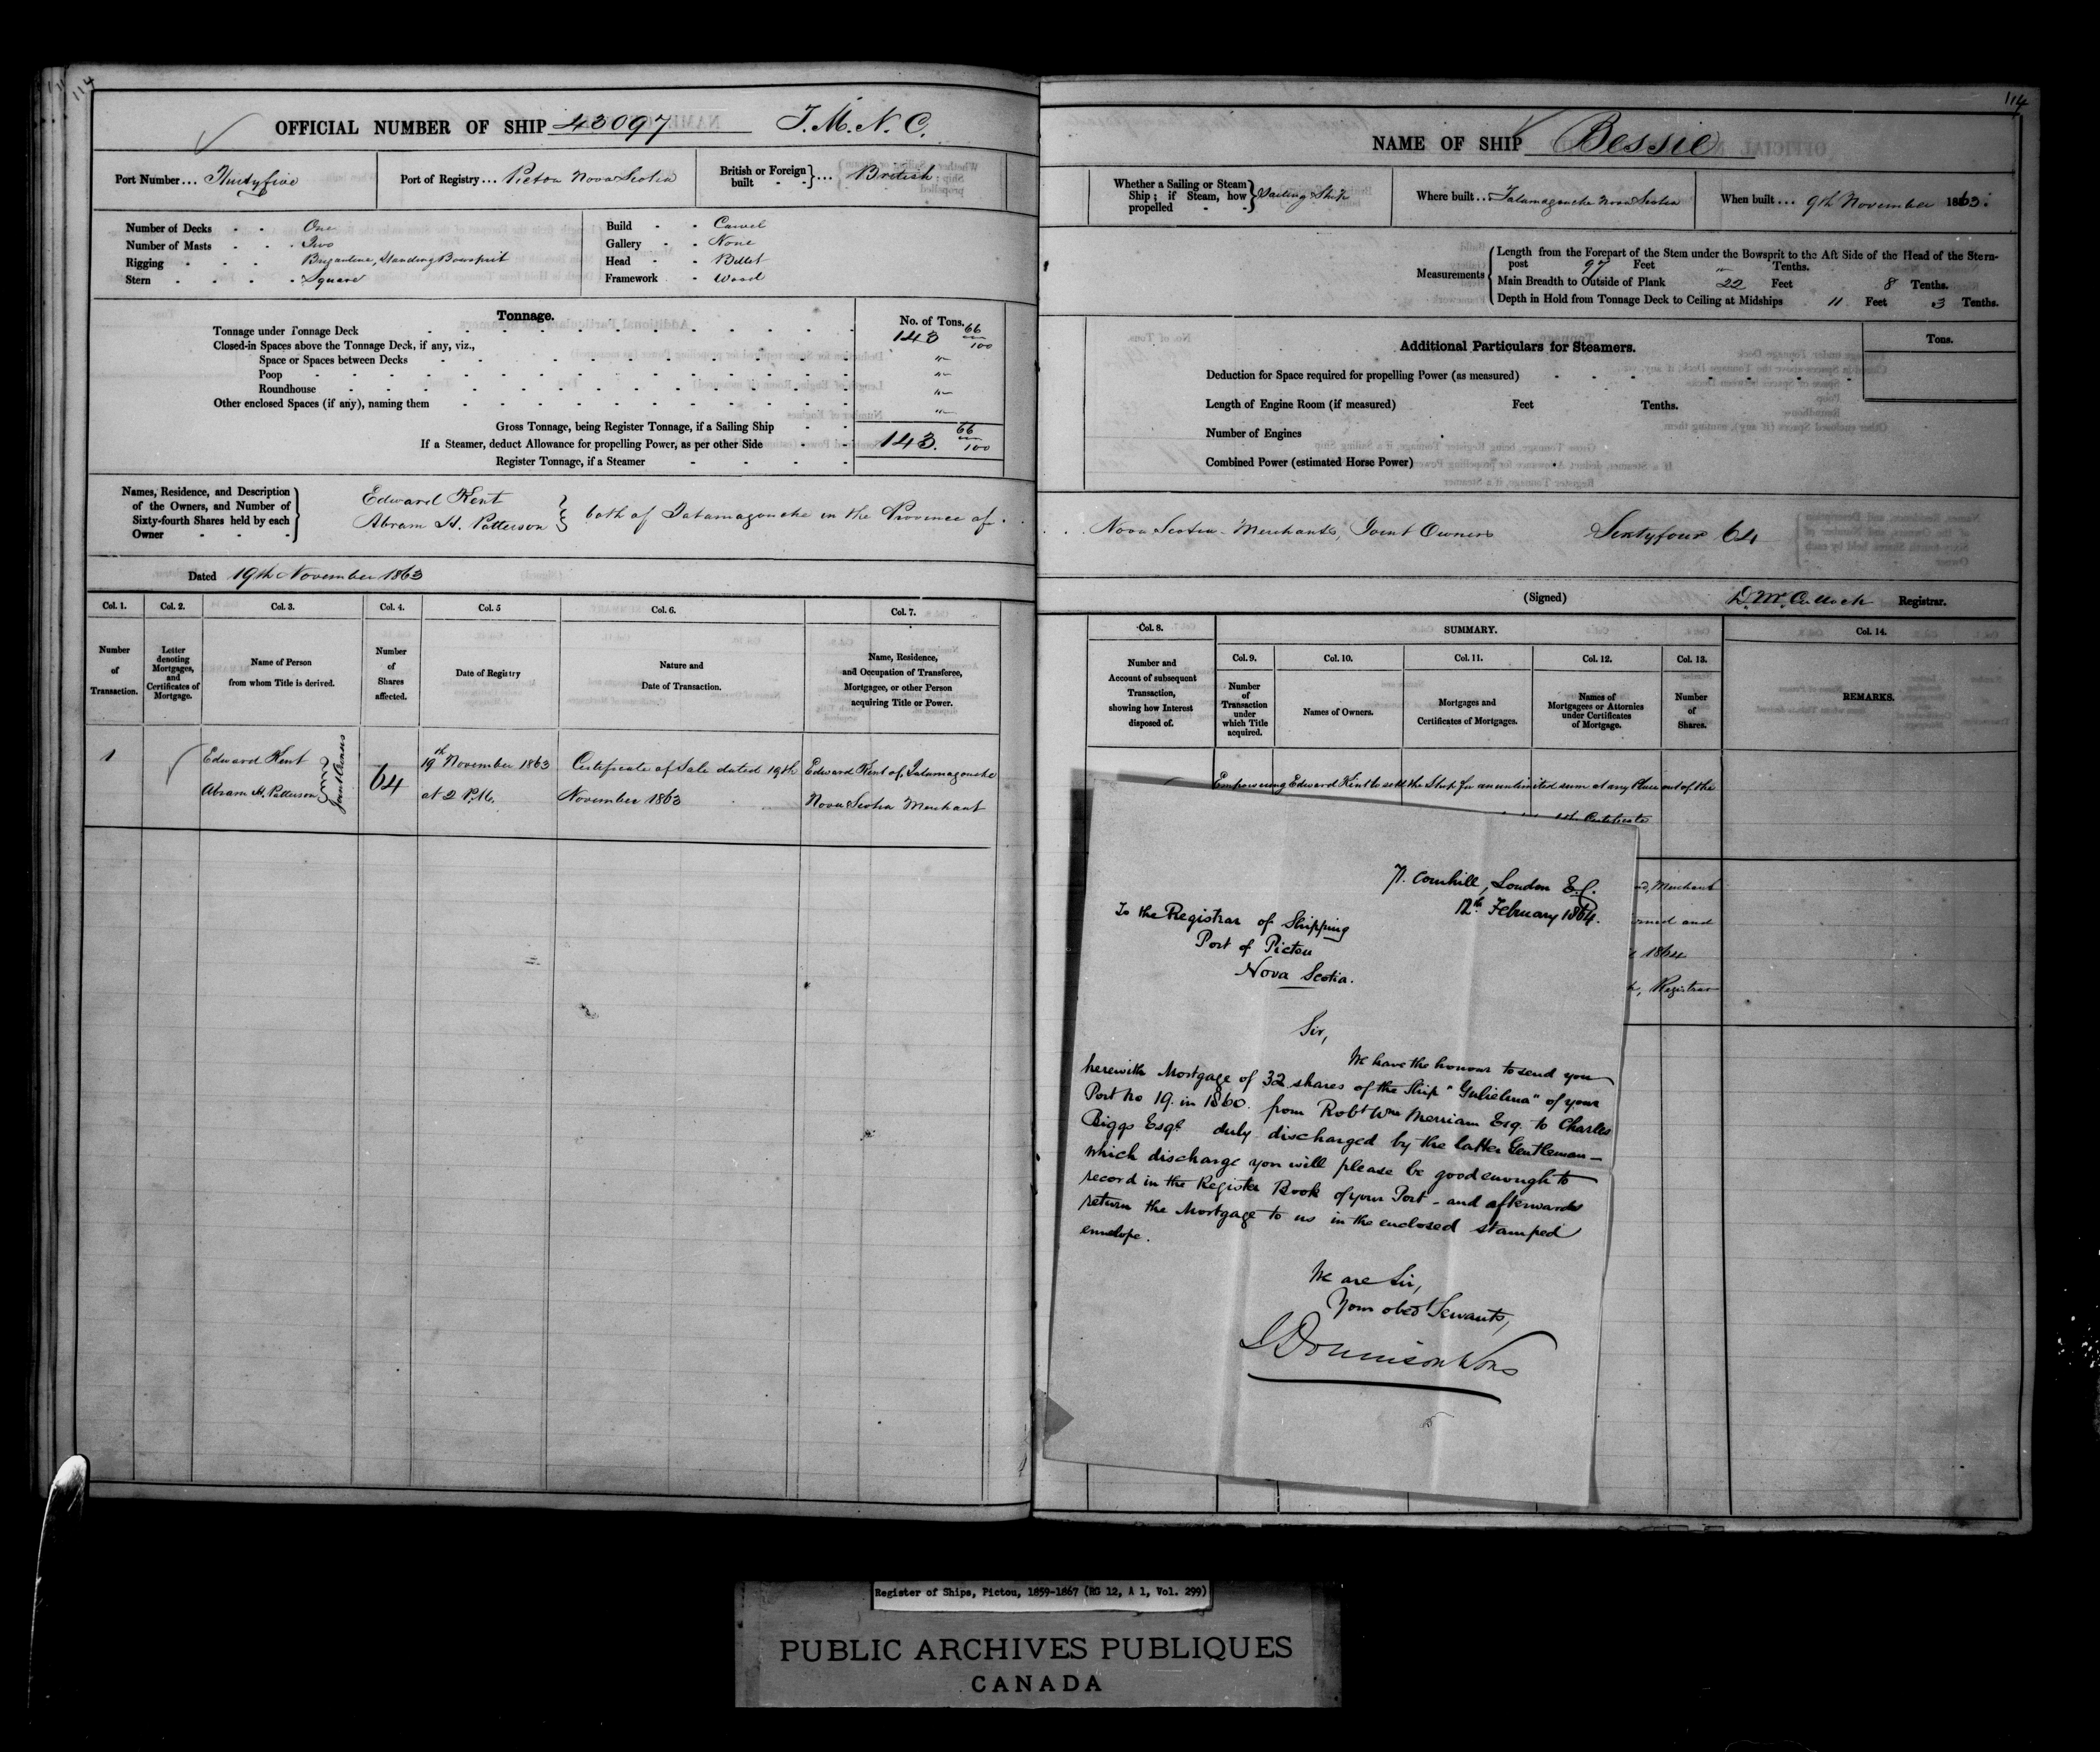 114
OFFICIAL NUMBER OF SHIP 43097 T. M. N. C.
Port Number... Thirtyfive
Port of Registry... Pictou Nova Scotia
British or Foreign built - - }... British
Number of Decks - - One
Number of Masts - - Two
Rigging - - - Brigantine, Standing Bowsprit
Stern - - - Square
Build - - Carvel
Gallery - - None
Head - - Billet
Framework - Wood
Tonnage.
No. of Tons.
Tonnage under Tonnage Deck 143 66/100
Closed-in Spaces above the Tonnage Deck, if any, viz.,
Space or Spaces between Decks "
Poop "
Roundhouse "
Other enclosed Spaces (if any), naming them "
Gross Tonnage, being Register Tonnage, if a Sailing Ship
If a Steamer, deduct Allowance for propelling Power, as per other Side 143. 66/100
Register Tonnage, if a Steamer
Names, Residence, and Description
of the Owners, and Number of
Sixty-fourth Shares held by each
Owner
Edward Kent
Abram H. Patterson } both of Tatamagouche in the Province of
Dated 19th November 1863
Col. 1. Col. 2. Col. 3. Col. 4. Col. 5 Col. 6. Col. 7.
Number of Transaction.
Letter denoting Mortgages, and Certificates of Mortgage.
Name of Person from whom Title is derived.
Number of Shares affected.
Date of Registry
Nature and Date of Transaction.
Name, Residence, and Occupation of Transferee, Mortgagee, or other Person acquiring Title or Power.
1
Edward Kent
Abram H. Patterson
Joint Owners
64
19th November 1863
at 2 P.M.
Certificate of Sale dated 19th
November 1863
Edward Kent of Tatamagouche
Nova Scotia Merchant
114
NAME OF SHIP Bessie
Whether a Sailing or Steam Ship; if Steam, how propelled - - } Sailing Ship
Where built... Tatamagouche Nova Scotia
When built... 9th November 1863.
Measurements
Length from the Forepart of the Stem under the Bowsprit to the Aft Side of the Head of the Stern-
post 97 Feet " Tenths.
Main Breadth to Outside of Plank 22 Feet 8 Tenths.
Depth in Hold from Tonnage Deck to Ceiling at Midships 11 Feet .3 Tenths.
Additional Particulars for Steamers.
Tons.
Deduction for Space required for propelling Power (as measured)
Length of Engine Room (if measured) Feet Tenths.
Number of Engines
Combined Power (estimated Horse Power)
Nova Scotia Merchants, Joint Owners Sixtyfour 64
(Signed) D. McCulloch Registrar.
Col. 8.
SUMMARY.
Col. 14.
Col. 9. Col. 10. Col. 11. Col. 12. Col. 13.
Number and Account of subsequent Transaction, showing how Interest disposed of.
Number of Transaction under which Title acquired.
Names of Owners.
Mortgages and Certificates of Mortgages.
Names of Mortgagees or Attornies under Certificates of Mortgage.
Number of Shares.
REMARKS.
Empowering Edward Kent to sell the Ship for an unlimited sum at any Place out of the
Certificate
Merchant
and
1864
Registrar
71. Cornhill, London E.C.
12th February 1864.
To the Registrar of Shipping
Port of Pictou
Nova Scotia.
Sir,
We have the honour to send you
herewith Mortgage of 32 shares of the Ship "Gulielma" of your
Port No 19. in 1860. from Robt Wm Merriam Esq. to Charles
Biggs Esqr duly discharged by the latter Gentleman—
which discharge you will please be good enough to
record in the Register Book of your Port - and afterwards
return the Mortgage to us in the enclosed stamped
envelope.
We are Sir,
Your obedt Servants,
Register of Ships, Pictou, 1859-1867 (RG 12, A 1, Vol. 299)
PUBLIC ARCHIVES PUBLIQUES
CANADA